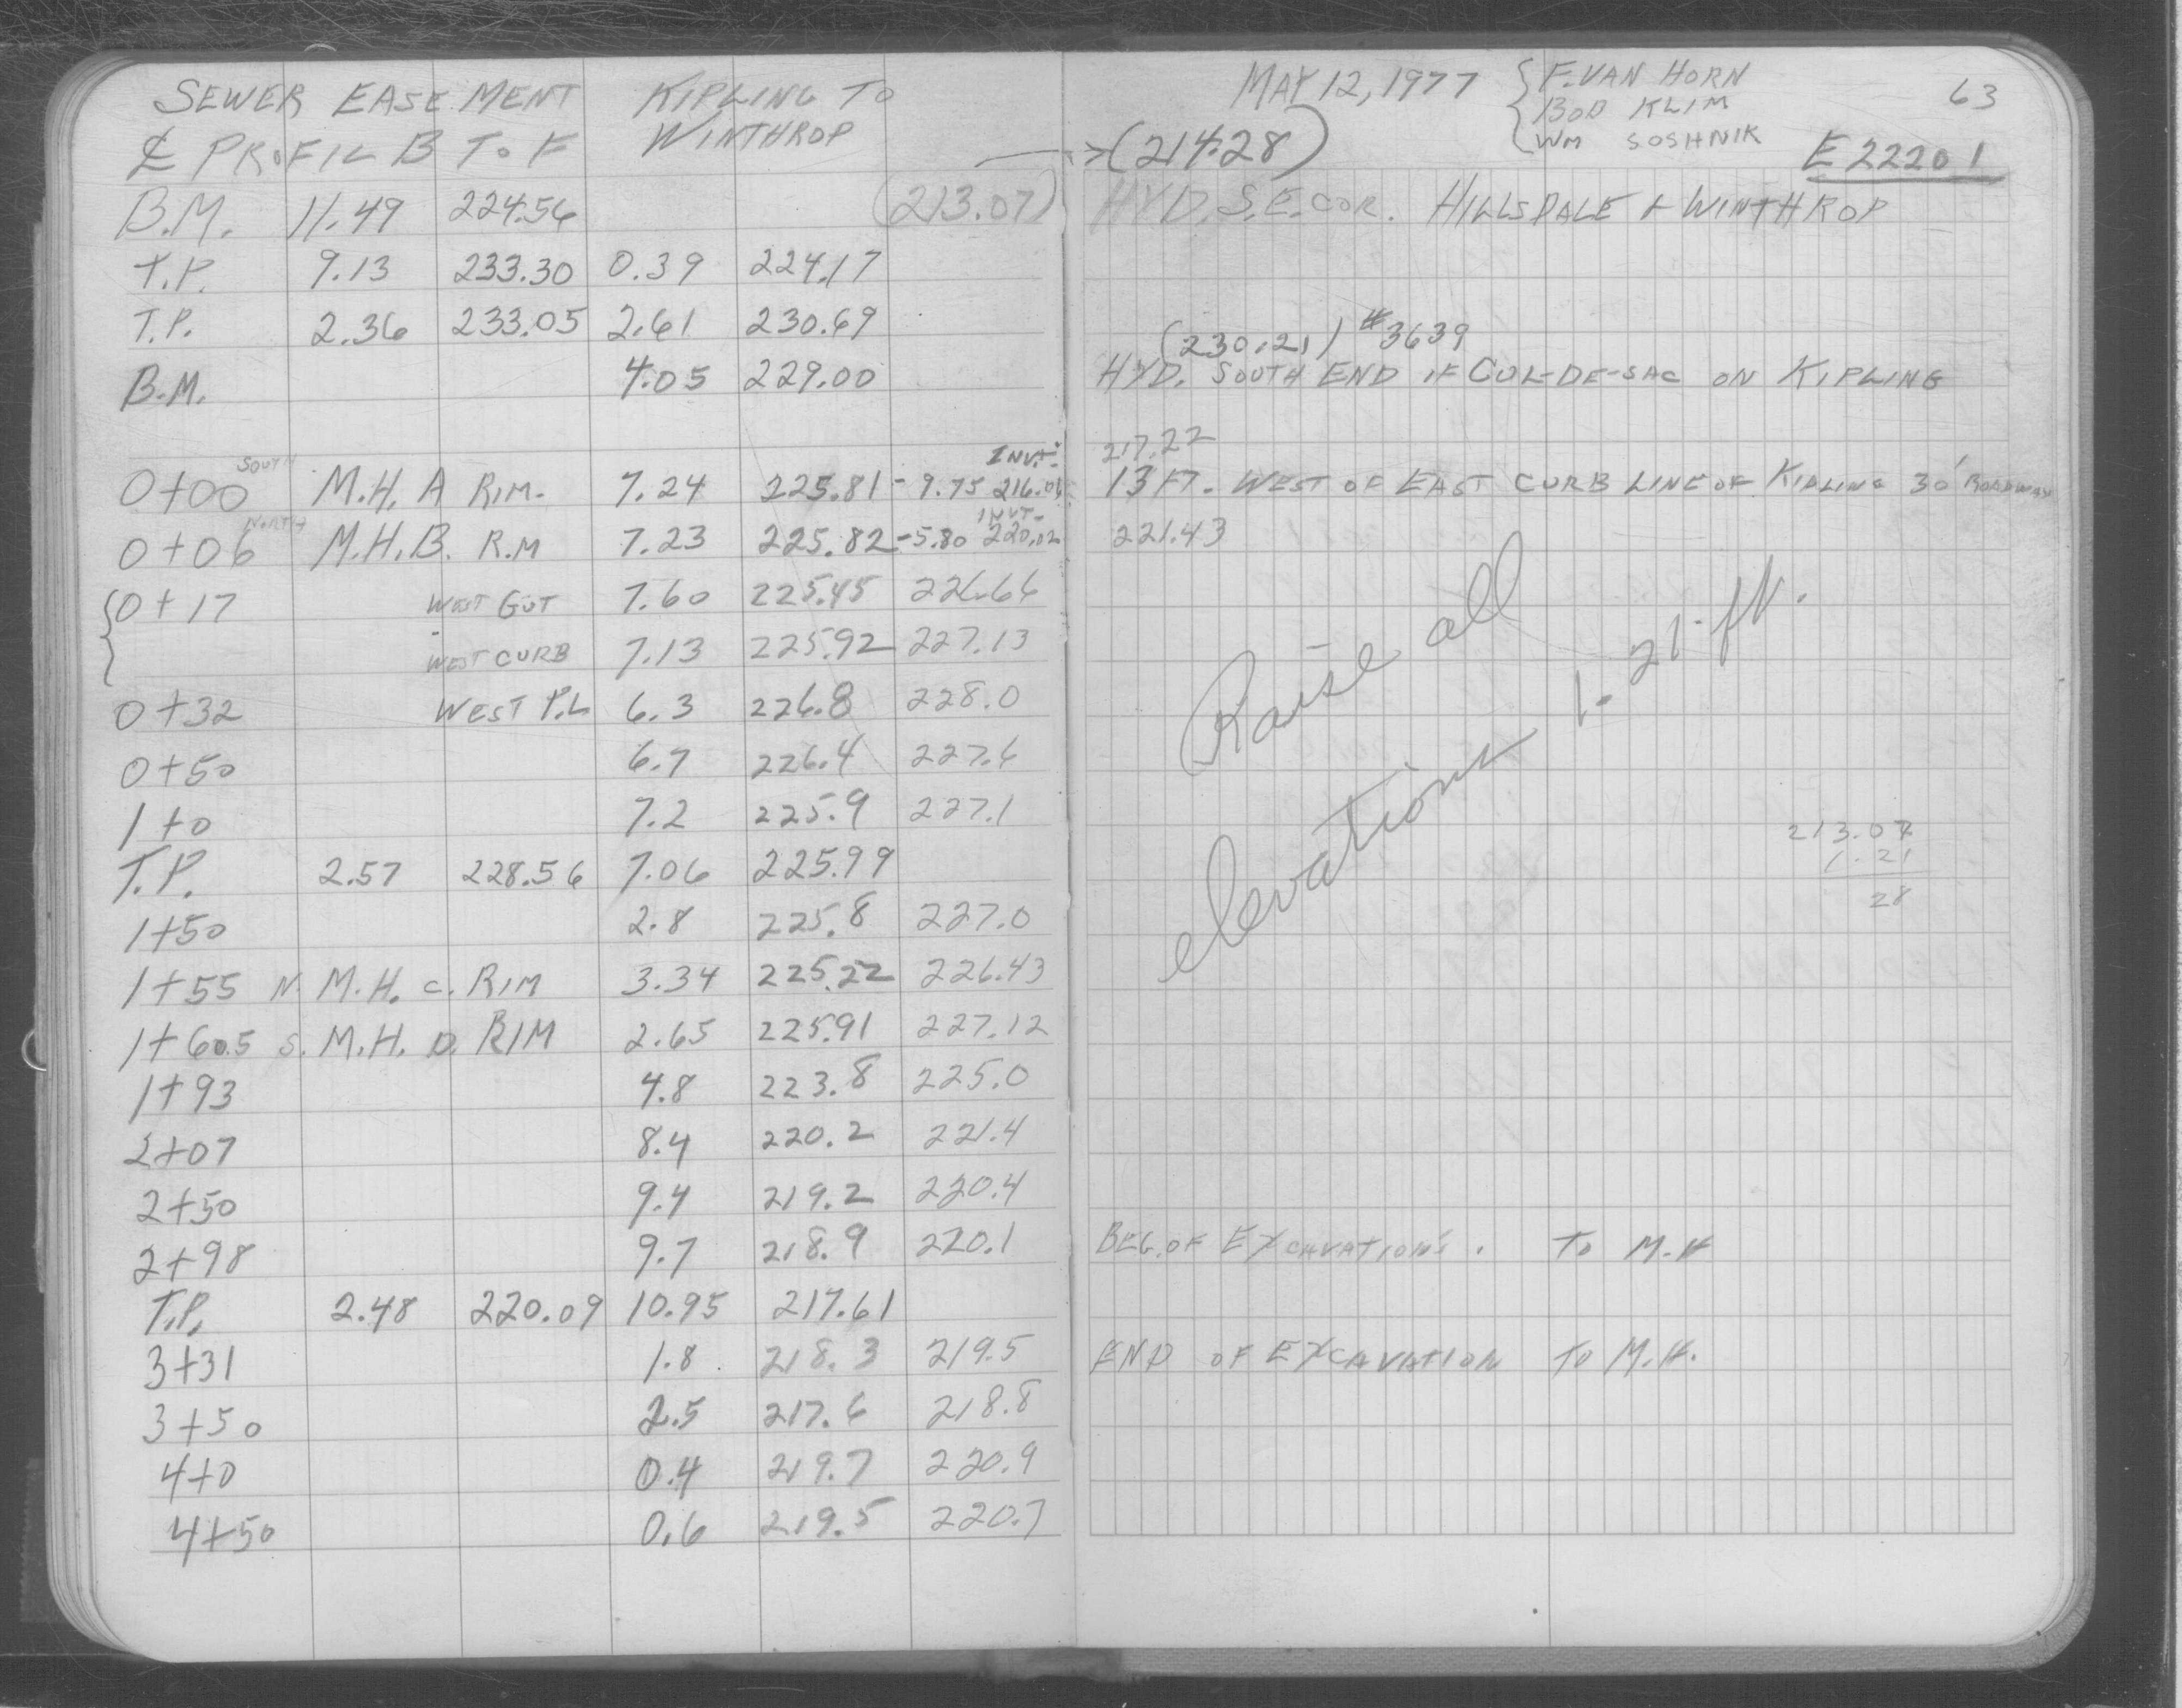 SEWER EASEMENT KIPLING TO
℄ PROFIL B TO F WINTHROP
B.M. 11.49 224.56 (213.07)
T.P. 9.13 233.30 0.39 224.17
T.P. 2.36 233.05 2.61 230.69
B.M. 4.05 229.00
INVT.
0+00 SOUTH M.H. A RIM. 7.24 225.81 - 9.75 216.06
INVT-
0+06 NORTH M.H. B. R.M 7.23 225.82 -5.80 220.02
0+17 WEST GUT 7.60 225.45 226.66
WEST CURB 7.13 225.92 227.13
0+32 WEST P.L 6.3 226.8 228.0
0+50 6.7 226.4 227.6
1+0 7.2 225.9 227.1
T.P. 2.57 228.56 7.06 225.99
1+50 2.8 225.8 227.0
1+55 N. M.H. C. RIM 3.34 225.22 226.43
1+60.5 S. M.H. D. RIM 2.65 225.91 227.12
1+93 4.8 223.8 225.0
2+07 8.4 220.2 221.4
2+50 9.4 219.2 220.4
2+98 9.7 218.9 220.1
T.P. 2.48 220.09 10.95 217.61
3+31 1.8 218.3 219.5
3+50 2.5 217.6 218.8
4+0 0.4 219.7 220.9
4+50 0.6 219.5 220.7
MAY 12, 1977 F. VAN HORN 63
BOB KLIM
WM SOSHNIK
(214.28) E 22201
HYD. S.E. COR. HILLSDALE + WINTHROP
(230.21) #3639
HYD. SOUTH END OF CUL-DE-SAC ON KIPLING
217.22
13 FT. WEST OF EAST CURB LINE OF KIPLING 30' ROADWAY
221.43
Raise all
elevations 1.21 ft.
213.07
1.21
28
BEG. OF EXCAVATIONS. TO M.H
END OF EXCAVATION TO M.H.